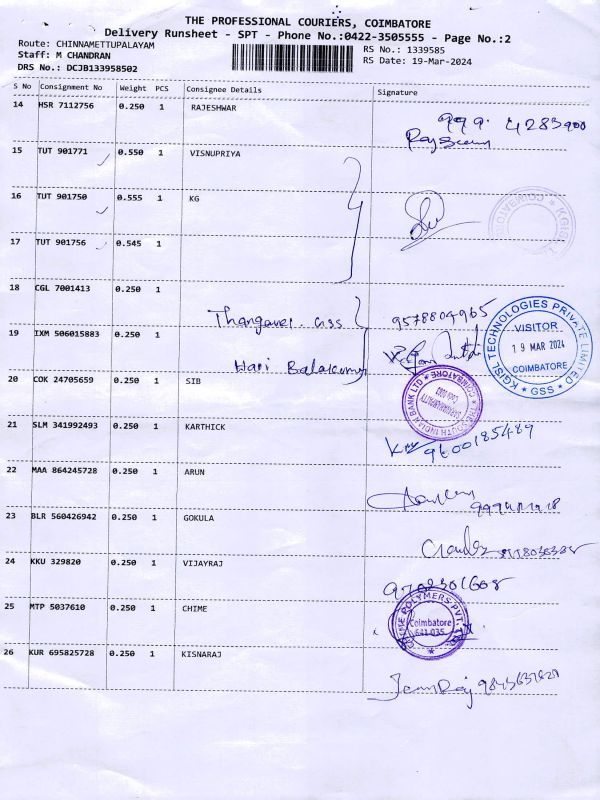 THE PROFESSIONAL COURIERS, COIMBATORE
Delivery Runsheet - SPT - Phone No.:0422-3505555 - Page No.:2
Route: CHINNAMETTUPALAYAM RS No.: 1339585
Staff: M CHANDRAN RS Date: 19-Mar-2024
DRS No.: DCJB133958502
S No Consignment No Weight PCS Consignee Details Signature
14 HSR 7112756 0.250 1 RAJESHWAR
15 TUT 901771 0.550 1 VISNUPRIYA
16 TUT 901750 0.555 1 KG
17 TUT 901756 0.545 1
18 CGL 7001413 0.250 1
Thangavel. GSS 9578804965
19 IXM 506015883 0.250 1
Hari Balakumar
KGISL TECHNOLOGIES PRIVATE LIMITED
VISITOR
19 MAR 2024
COIMBATORE
GSS
20 COK 24705659 0.250 1 SIB
THE SOUTH INDIAN BANK LTD
COIMBATORE
21 SLM 341992493 0.250 1 KARTHICK
9600185489
22 MAA 864245728 0.250 1 ARUN
23 BLR 560426942 0.250 1 GOKULA
24 KKU 329820 0.250 1 VIJAYRAJ
25 MTP 5037610 0.250 1 CHIME
CHIME POLYMERS PVT. LTD.
Coimbatore
641 035
26 KUR 695825728 0.250 1 KISNARAJ